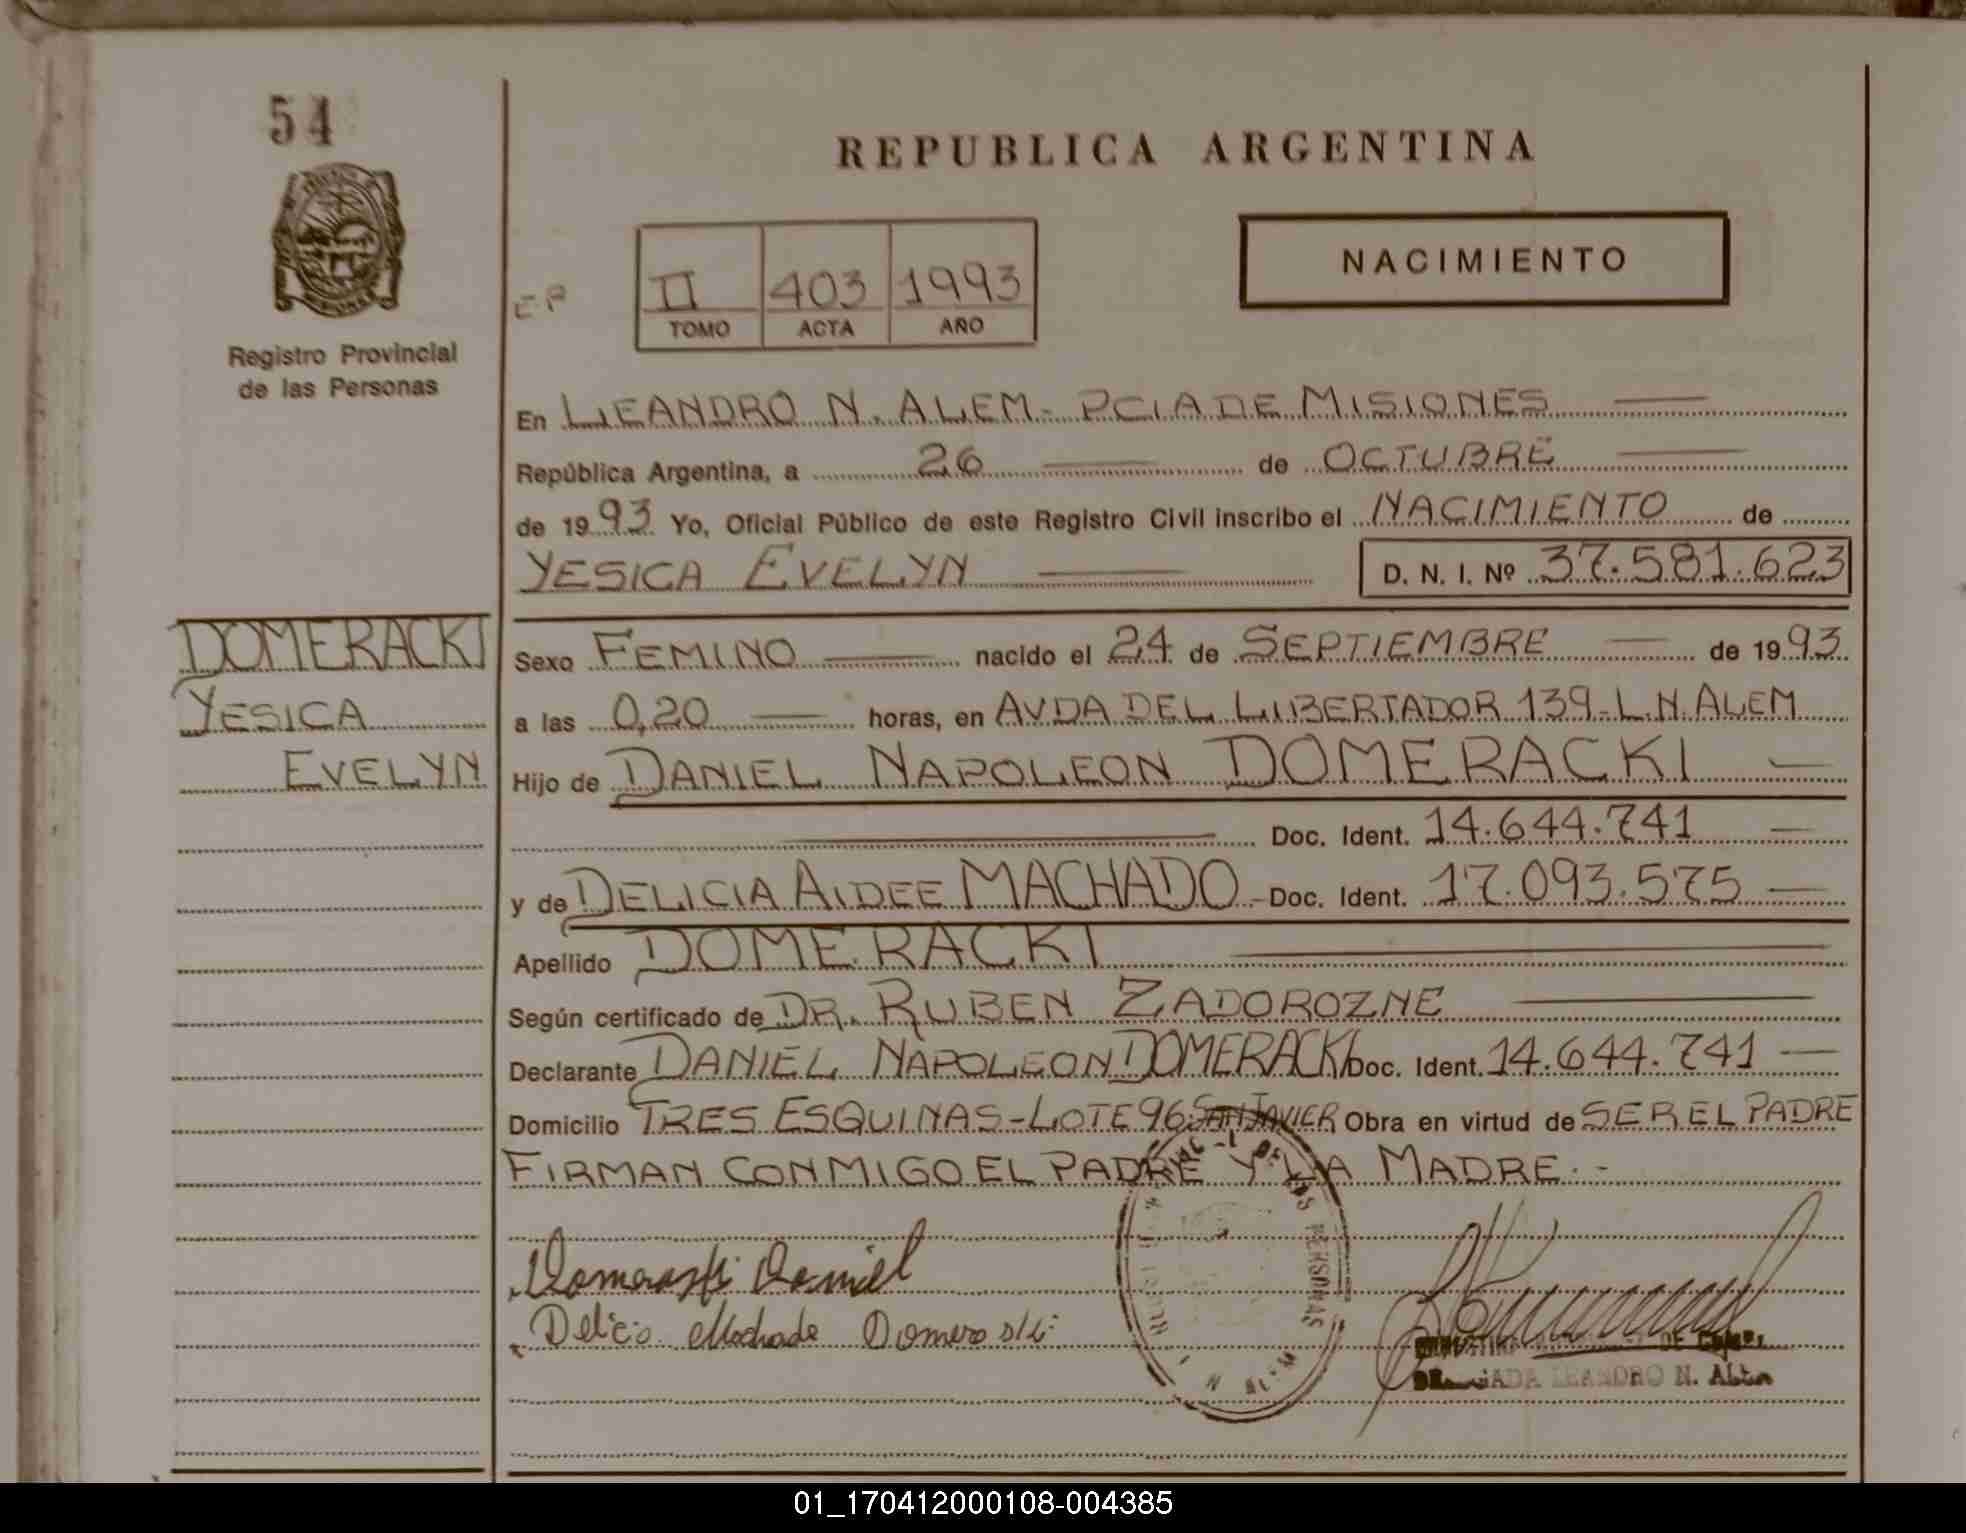 54
REPUBLICA ARGENTINA
NACIMIENTO
EP
II 403 1993
TOMO ACTA AÑO
Registro Provincial
de las Personas
En LEANDRO N. ALEM - PCIA DE MISIONES
República Argentina, a 26 de OCTUBRE
de 1993 Yo, Oficial Público de este Registro Civil inscribo el NACIMIENTO de
YESICA EVELYN D. N. I. Nº 37.581.623
DOMERACKI
YESICA
EVELYN
Sexo FEMINO nacido el 24 de SEPTIEMBRE de 1993
a las 0,20 horas, en AVDA DEL LIBERTADOR 139 - L.N. ALEM
Hijo de DANIEL NAPOLEON DOMERACKI
Doc. Ident. 14.644.741
y de DELICIA AIDEE MACHADO - Doc. Ident. 17.093.575
Apellido DOMERACKI
Según certificado de DR. RUBEN ZADOROZNE
Declarante DANIEL NAPOLEON DOMERACKI Doc. Ident. 14.644.741
Domicilio TRES ESQUINAS - LOTE 96 - SAN JAVIER Obra en virtud de SER EL PADRE
FIRMAN CONMIGO EL PADRE Y LA MADRE. -
Domeracki Daniel
Delicia Machado Domeracki
DE LAS PERSONAS
N. ALEM
LEANDRO N. ALEM
01_170412000108-004385